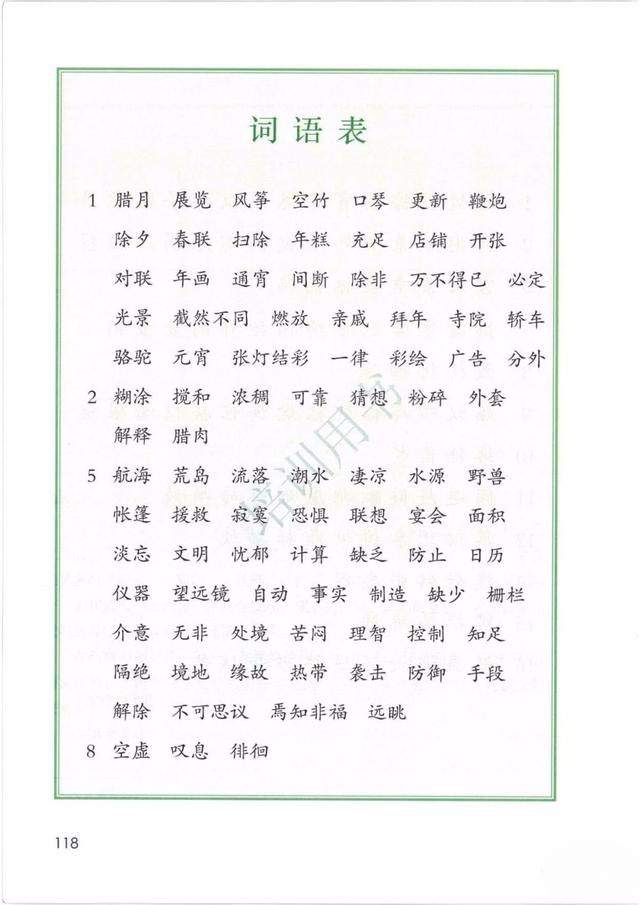 词语表
1 腊月 展览 风筝 空竹 口琴 更新 鞭炮
除夕 春联 扫除 年糕 充足 店铺 开张
对联 年画 通宵 间断 除非 万不得已 必定
光景 截然不同 燃放 亲戚 拜年 寺院 轿车
骆驼 元宵 张灯结彩 一律 彩绘 广告 分外
2 糊涂 搅和 浓稠 可靠 猜想 粉碎 外套
解释 腊肉
5 航海 荒岛 流落 潮水 凄凉 水源 野兽
帐篷 援救 寂寞 恐惧 联想 宴会 面积
淡忘 文明 忧郁 计算 缺乏 防止 日历
仪器 望远镜 自动 事实 制造 缺少 栅栏
介意 无非 处境 苦闷 理智 控制 知足
隔绝 境地 缘故 热带 袭击 防御 手段
解除 不可思议 焉知非福 远眺
8 空虚 叹息 徘徊
培训用书
118